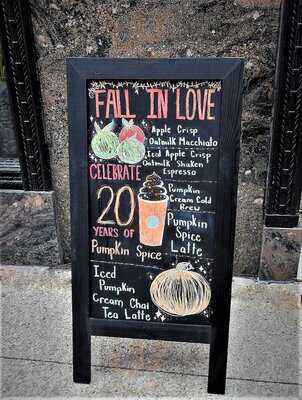 FALL IN LOVE
Apple Crisp
Oatmilk Macchiato
Iced Apple Crisp
Oatmilk Shaken
Espresso
CELEBRATE
20
YEARS OF
Pumpkin Spice
Pumpkin
Cream Cold
Brew
Pumpkin
Spice
Latte
Iced
Pumpkin
Cream Chai
Tea Latte